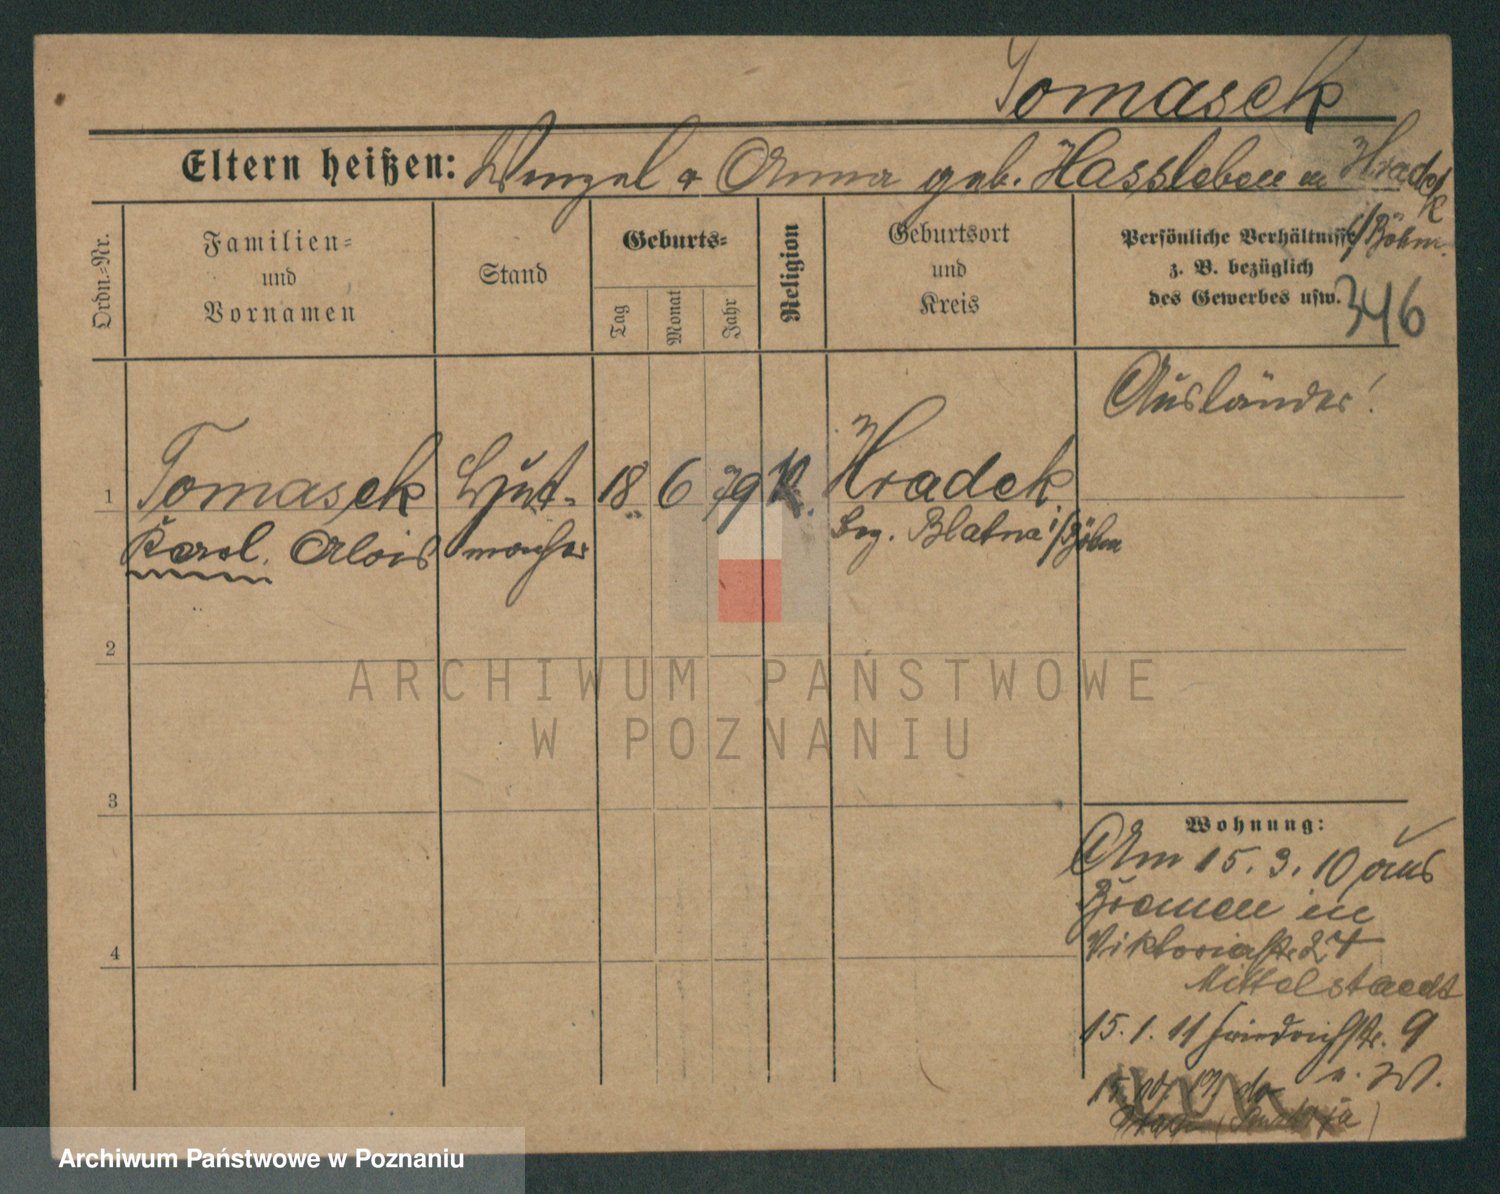 Tomasek
Eltern heißen: Wenzel & Anna geb. Hassleben in Hradek
i/Böhm.
Ordn.-Nr.
Familien-
und
Vornamen
Stand
Geburts-
Tag
Monat
Jahr
Religion
Geburtsort
und
Kreis
Persönliche Verhältnisse
z. B. bezüglich
des Gewerbes usw.
346
Ausländer!
1 Tomasek Hut- 18. 6 79 K. Hradek
Karl Alois macher Bez. Blatna i/Böhm
2
3
4
ARCHIWUM PAŃSTWOWE
W POZNANIU
Wohnung:
Am 15. 3. 10 aus
Bremen in
Viktoriastr 27
Mittelstaedt
15. 1. 11 Friedrichstr. 9
v. W.
Archiwum Państwowe w Poznaniu